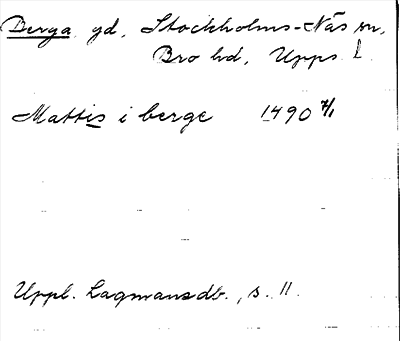 Berga gd, Stockholms-Näs sn,
Bro hd, Upps. l.
Mattis i berge 1490 7/1
Uppl. Lagmansdb., s. 11.